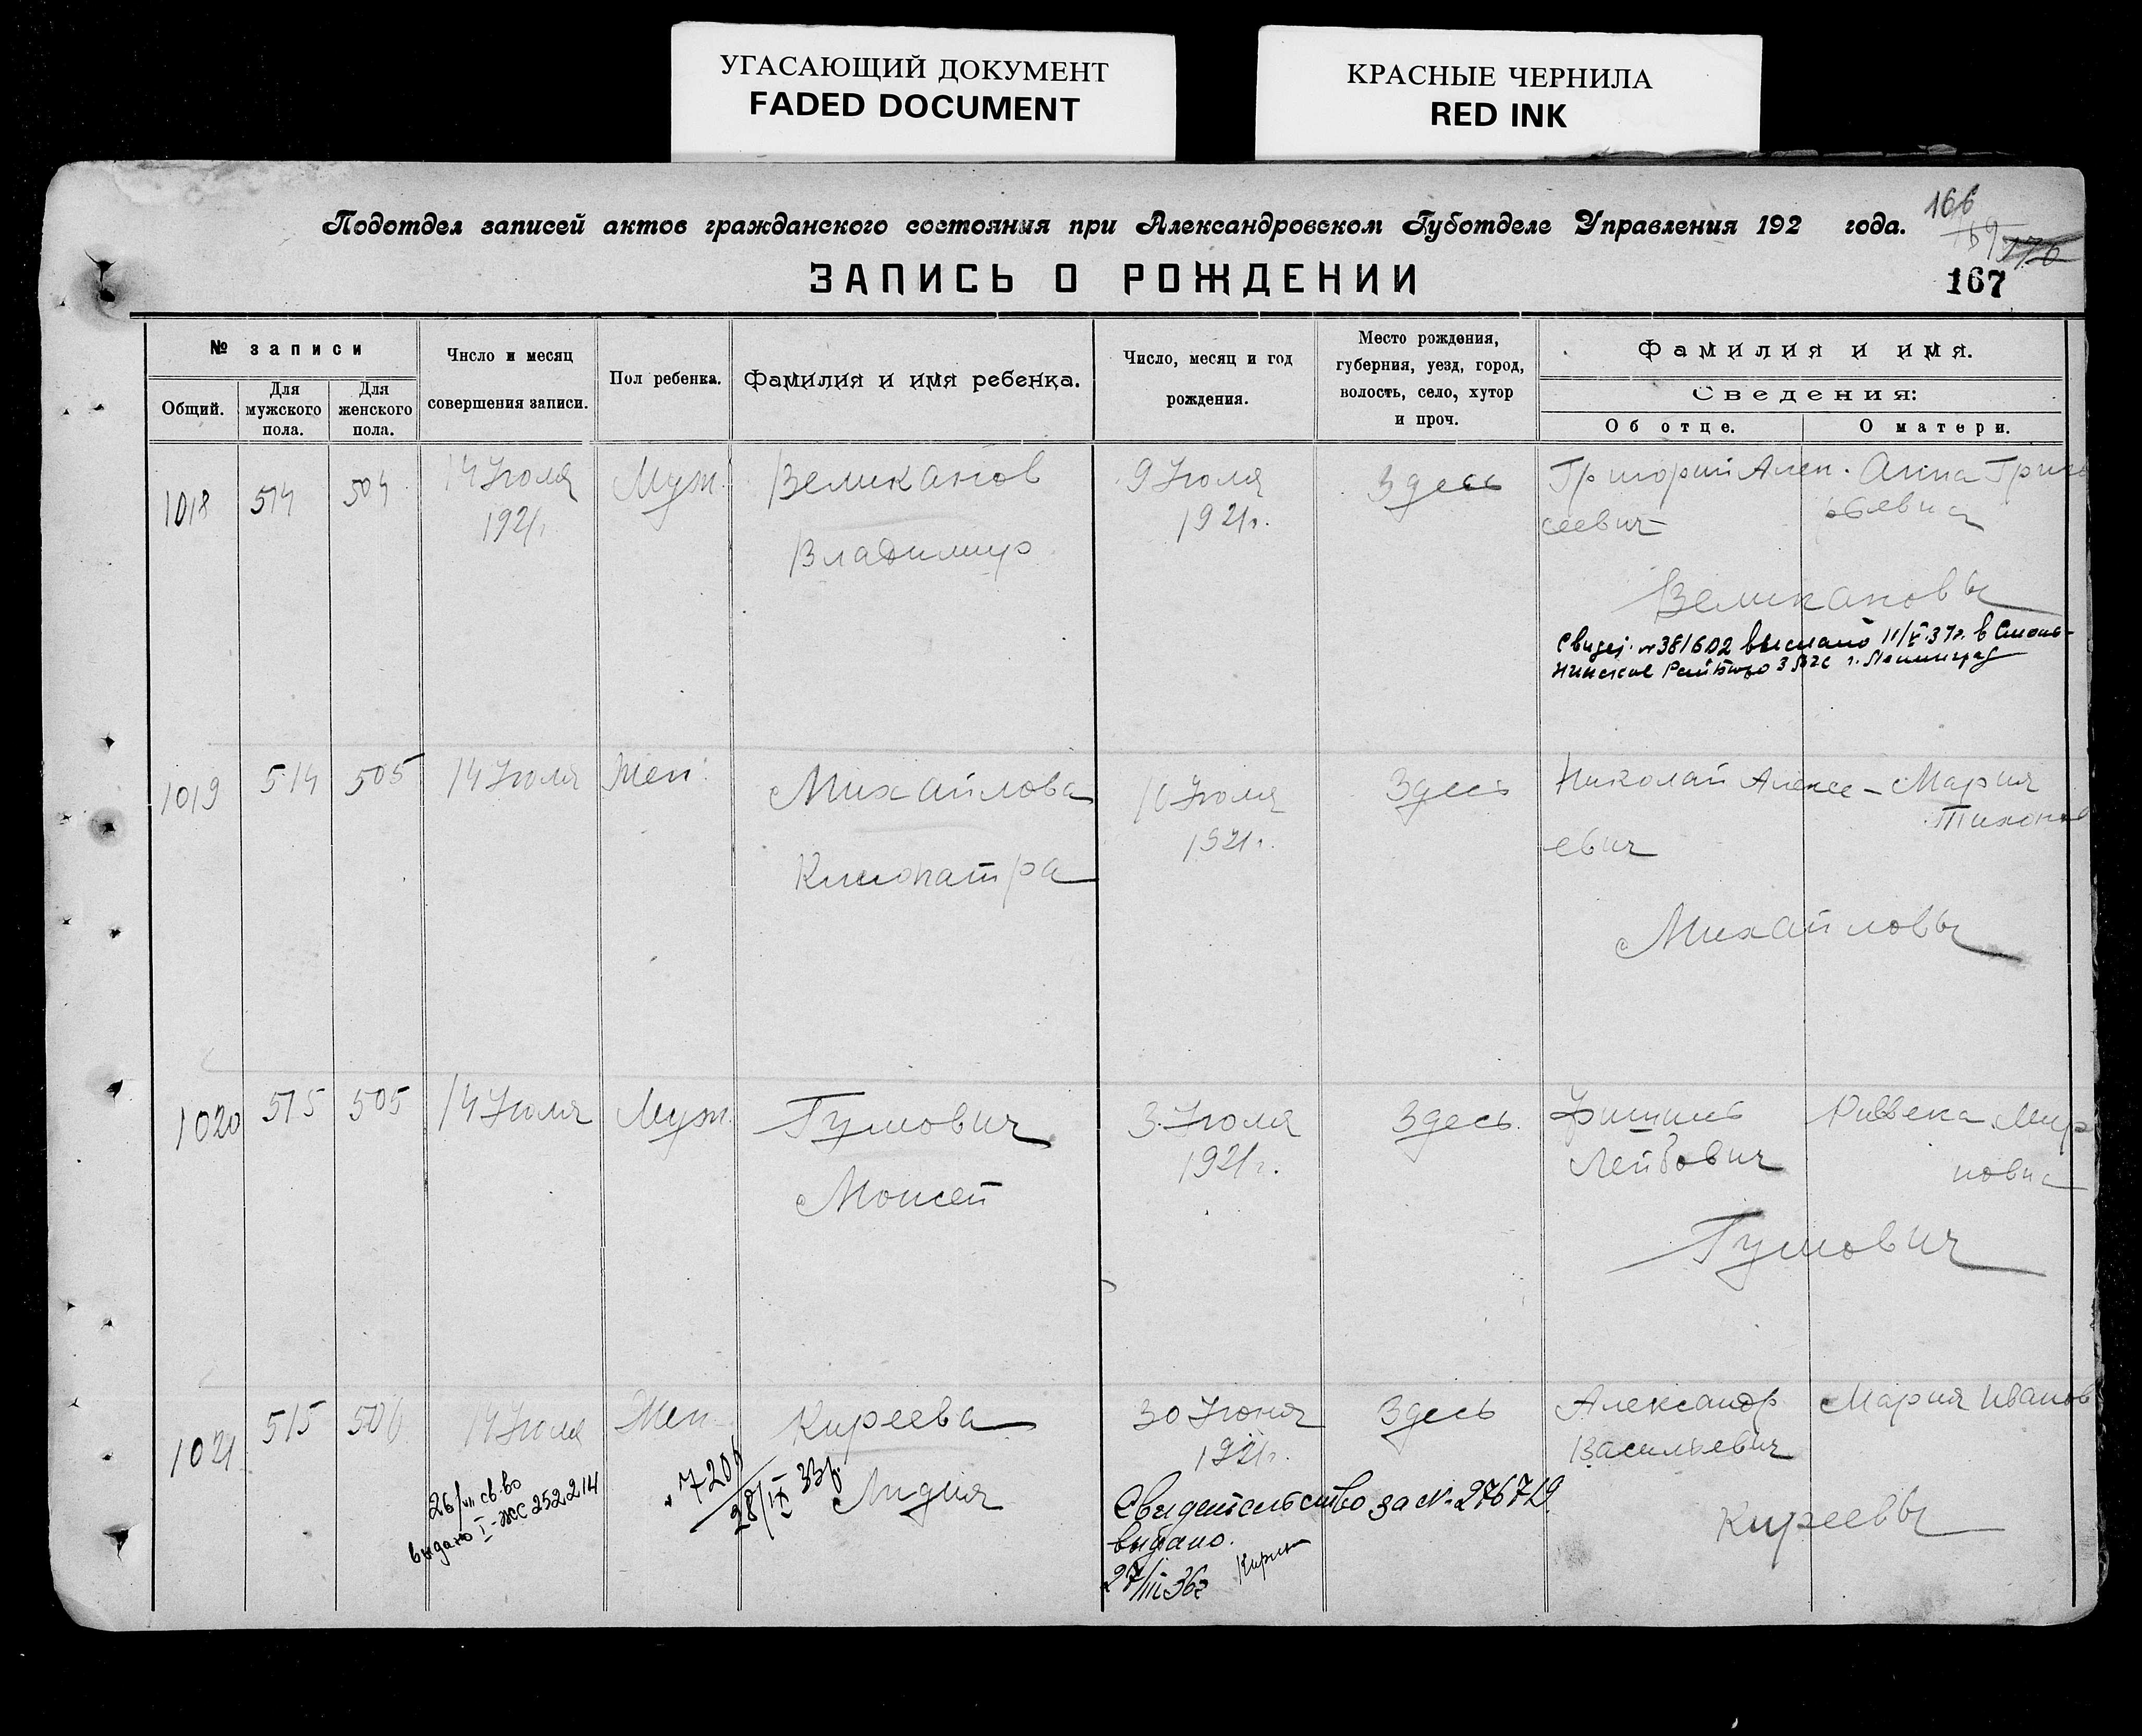 УГАСАЮЩИЙ ДОКУМЕНТ
FADED DOCUMENT
КРАСНЫЕ ЧЕРНИЛА
RED INK
Подотдел записей актов гражданского состояния при Александровском Губотделе Управления 192 года.
166
169 170
ЗАПИСЬ О РОЖДЕНИИ
167
№ записи
Общий.
Для мужского пола.
Для женского пола.
Число и месяц совершения записи.
Пол ребенка.
Фамилия и имя ребенка.
Число, месяц и год рождения.
Место рождения, губерния, уезд, город, волость, село, хутор и проч.
Фамилия и имя.
Сведения:
Об отце.
О матери.
1018 514 504 14 Июля Муж. Великанов 9 Июля Здесь Григорий Алек- Анна Григо
1921г. 1921г. сеевич рьевна
Владимир
Великановы
Свидет. № 381602 выслано 11/V.37г. в Смоль-
нинское РайБюро ЗАГС г. Ленинград
1019 514 505 14 Июля Жен. Михайлова 10 Июля Здесь Николай Алексе- Мария
1921г. евич Тихонов
Клеопатра
Михайловы
1020 515 505 14 Июля Муж. Гумович 3 Июля Здесь Фишель Ривека Мир
1921г. Лейбович новна
Моисей
Гумович
1021 515 506 14 Июля Жен. Киреева 30 Июня Здесь Александр Мария Иванов
1921г. Васильевич
Лидия
Киреевы
26/VII св-во
выдано I-ЖС 252214
№ 7206
28/IX 33г.
Свидетельство за № 276719
выдано.
27/III 36г